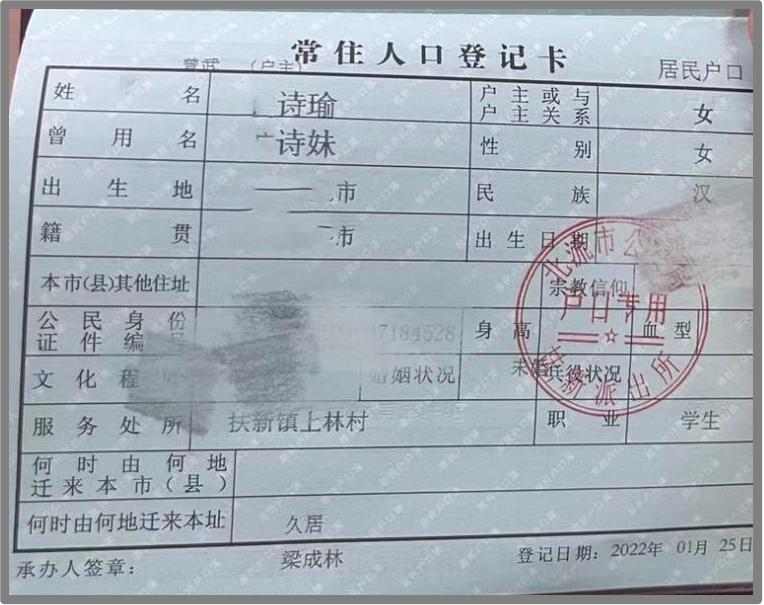 常住人口登记卡
曾武 (户主) 居民户口
姓名 诗瑜 户主或与户主关系 女
曾用名 诗妹 性别 女
出生地 市 民族 汉
籍贯 市 出生日期
本市(县)其他住址 宗教信仰
公民身份证件编号 7184528 身高 血型
文化程 婚姻状况 未婚 兵役状况
服务处所 扶新镇上林村 职业 学生
何时由何地迁来本市(县)
何时由何地迁来本址 久居
承办人签章: 梁成林 登记日期: 2022年 01月 25日
北流市公
户口专用
新派出所